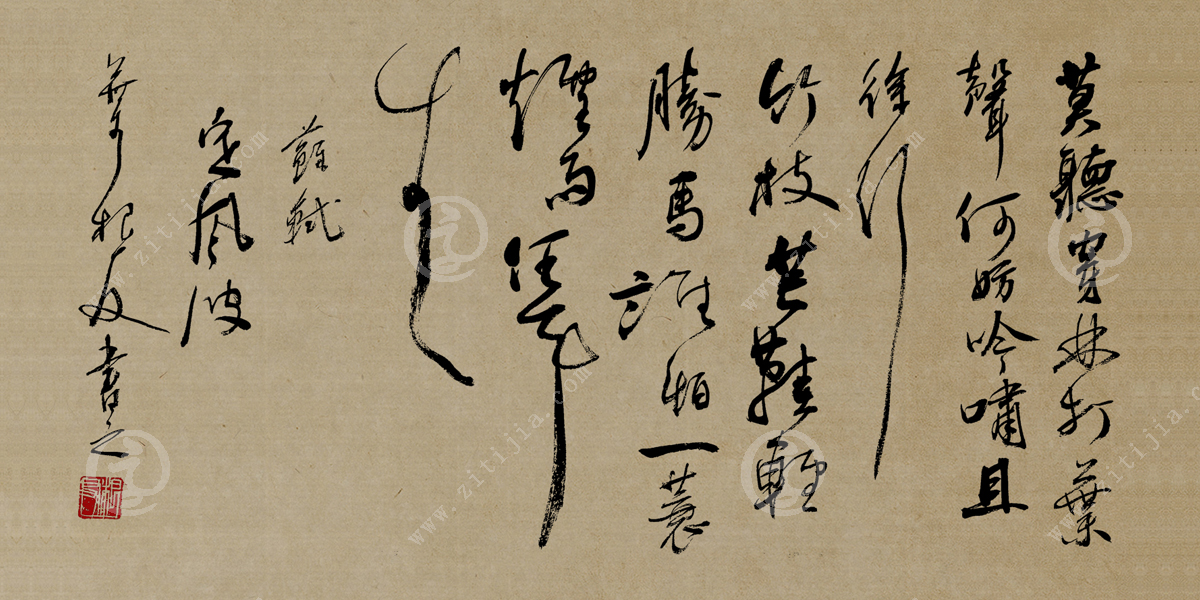 莫聽穿林打葉
聲何妨吟嘯且
徐行
竹枝芒鞋輕
勝馬誰怕一蓑
煙雨任平
生
蘇軾
定風波
根友書之
www.zitijia.com